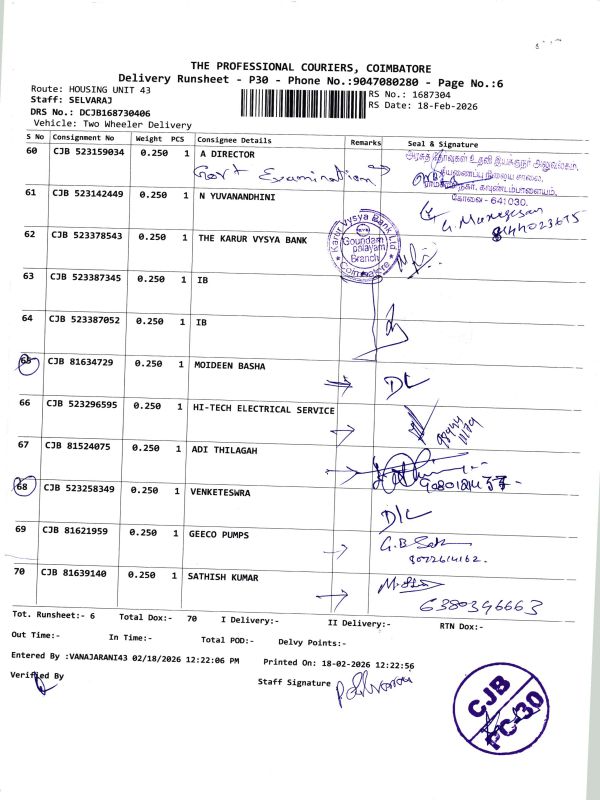 THE PROFESSIONAL COURIERS, COIMBATORE
Delivery Runsheet - P30 - Phone No.:9047080280 - Page No.:6
Route: HOUSING UNIT 43
RS No.: 1687304
Staff: SELVARAJ
RS Date: 18-Feb-2026
DRS No.: DCJB168730406
Vehicle: Two Wheeler Delivery
S No Consignment No Weight PCS Consignee Details Remarks Seal & Signature
60 CJB 523159034 0.250 1 A DIRECTOR
Govt Examination
அரசுத் தேர்வுகள் உதவி இயக்குநர் அலுவலகம்,
கவுண்டம்பாளையம்,
கோவை - 641 030.
61 CJB 523142449 0.250 1 N YUVANANDHINI
G. Murugesan
62 CJB 523378543 0.250 1 THE KARUR VYSYA BANK
Karur Vysya Bank Ltd
Goundam
palayam
Branch
Coimbatore
63 CJB 523387345 0.250 1 IB
64 CJB 523387052 0.250 1 IB
65 CJB 81634729 0.250 1 MOIDEEN BASHA
DL
66 CJB 523296595 0.250 1 HI-TECH ELECTRICAL SERVICE
67 CJB 81524075 0.250 1 ADI THILAGAH
68 CJB 523258349 0.250 1 VENKETESWRA
D/L
69 CJB 81621959 0.250 1 GEECO PUMPS
70 CJB 81639140 0.250 1 SATHISH KUMAR
6380396663
Tot. Runsheet:- 6 Total Dox:- 70 I Delivery:- II Delivery:- RTN Dox:-
Out Time:- In Time:- Total POD:- Delvy Points:-
Entered By :VANAJARANI43 02/18/2026 12:22:06 PM Printed On: 18-02-2026 12:22:56
Verified By Staff Signature
CJB
PC-30